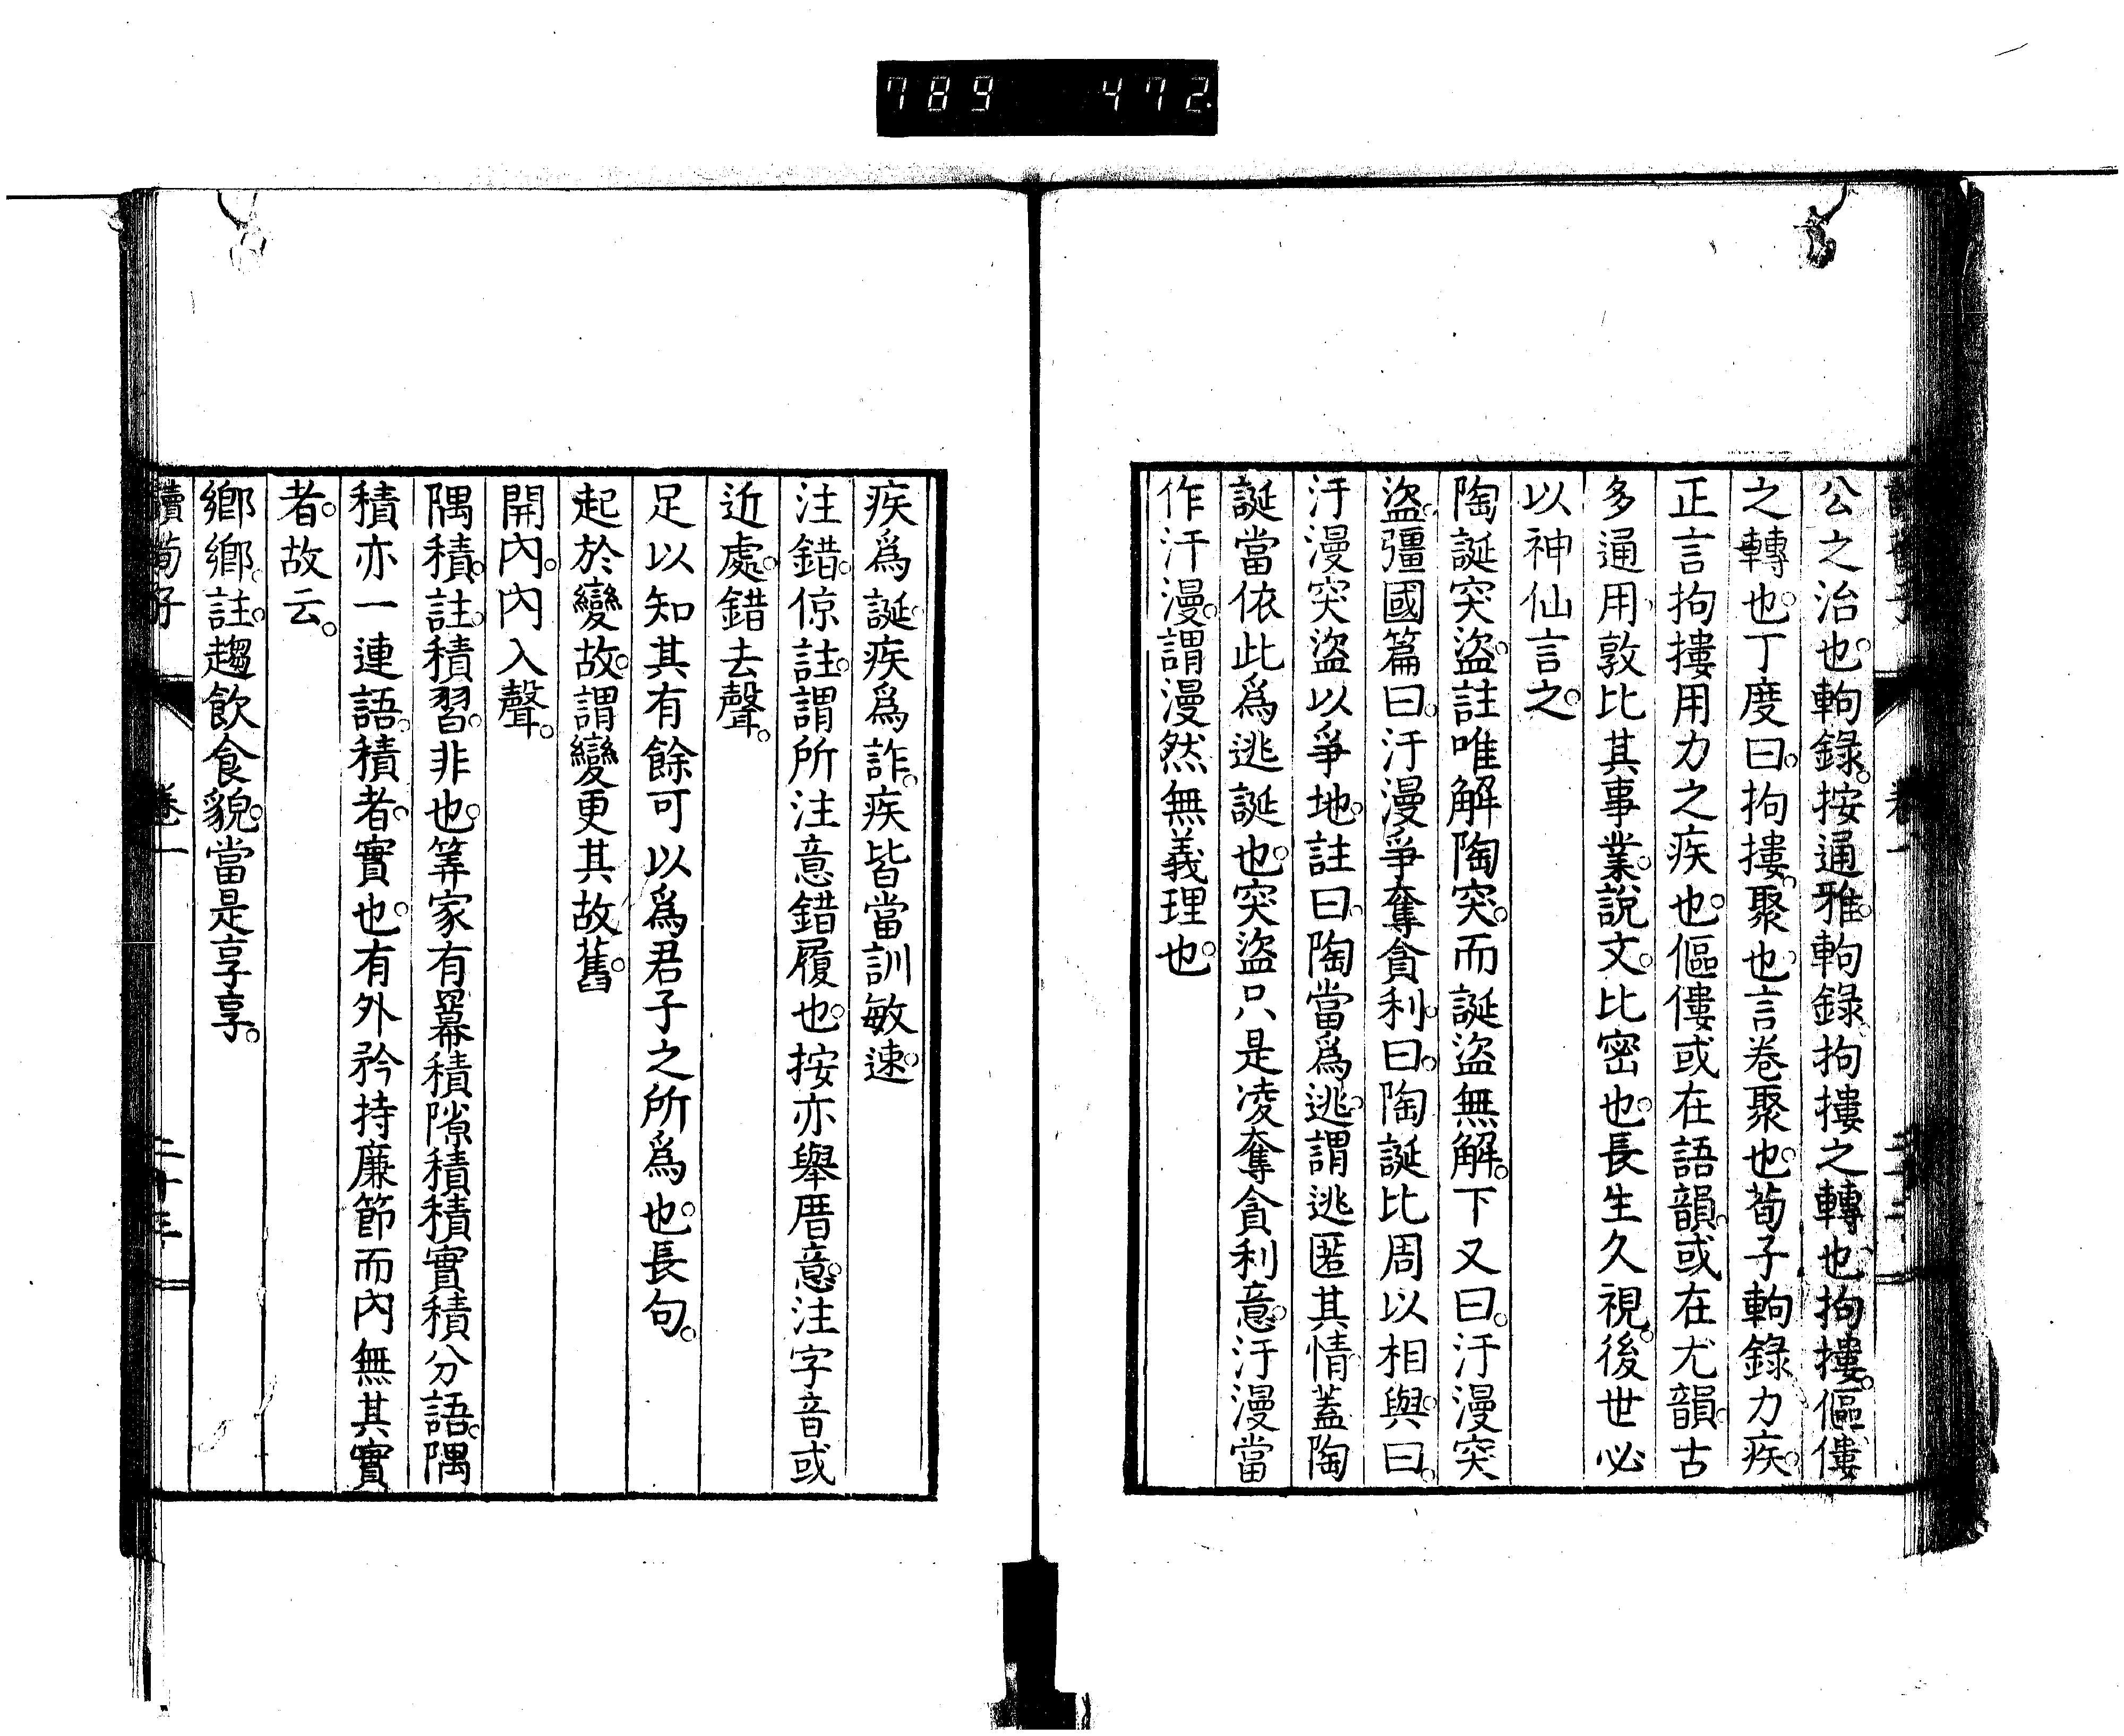 789 472
公之治也。軥錄。按通雅。軥錄。拘摟之轉也。拘摟。傴僂
之轉也。丁度曰。拘摟。聚也。言卷聚也。荀子軥錄力疾。
正言拘摟用力之疾也。傴僂或在語韻。或在尤韻。古
多通用。敦比其事業。說文。比密也。長生久視。後世必
以神仙言之。
陶誕突盜。註唯解陶突。而誕盜無解。下又曰。汙漫突
盜。彊國篇曰。汙漫爭奪貪利。曰。陶誕比周以相與。曰。
汙漫突盜以爭地。註曰。陶當爲逃。謂逃匿其情。蓋陶
誕當依此爲逃誕也。突盜只是凌奪貪利意。汙漫當
作汗漫。謂漫然無義理也。
疾爲誕。疾爲詐。疾皆當訓敏速。
注錯。倞註。謂所注意錯履也。按亦舉厝意。注字音或
近處。錯去聲。
足以知其有餘可以爲君子之所爲也。長句。
起於變故。謂變更其故舊。
開內。內入聲。
隅積。註。積習。非也。筭家有冪積隙積積實積分語。隅
積亦一連語。積者。實也。有外矜持廉節而內無其實
者。故云。
鄉鄉。註。趨飲食貌。當是享享。
讀荀子 卷一 二十三